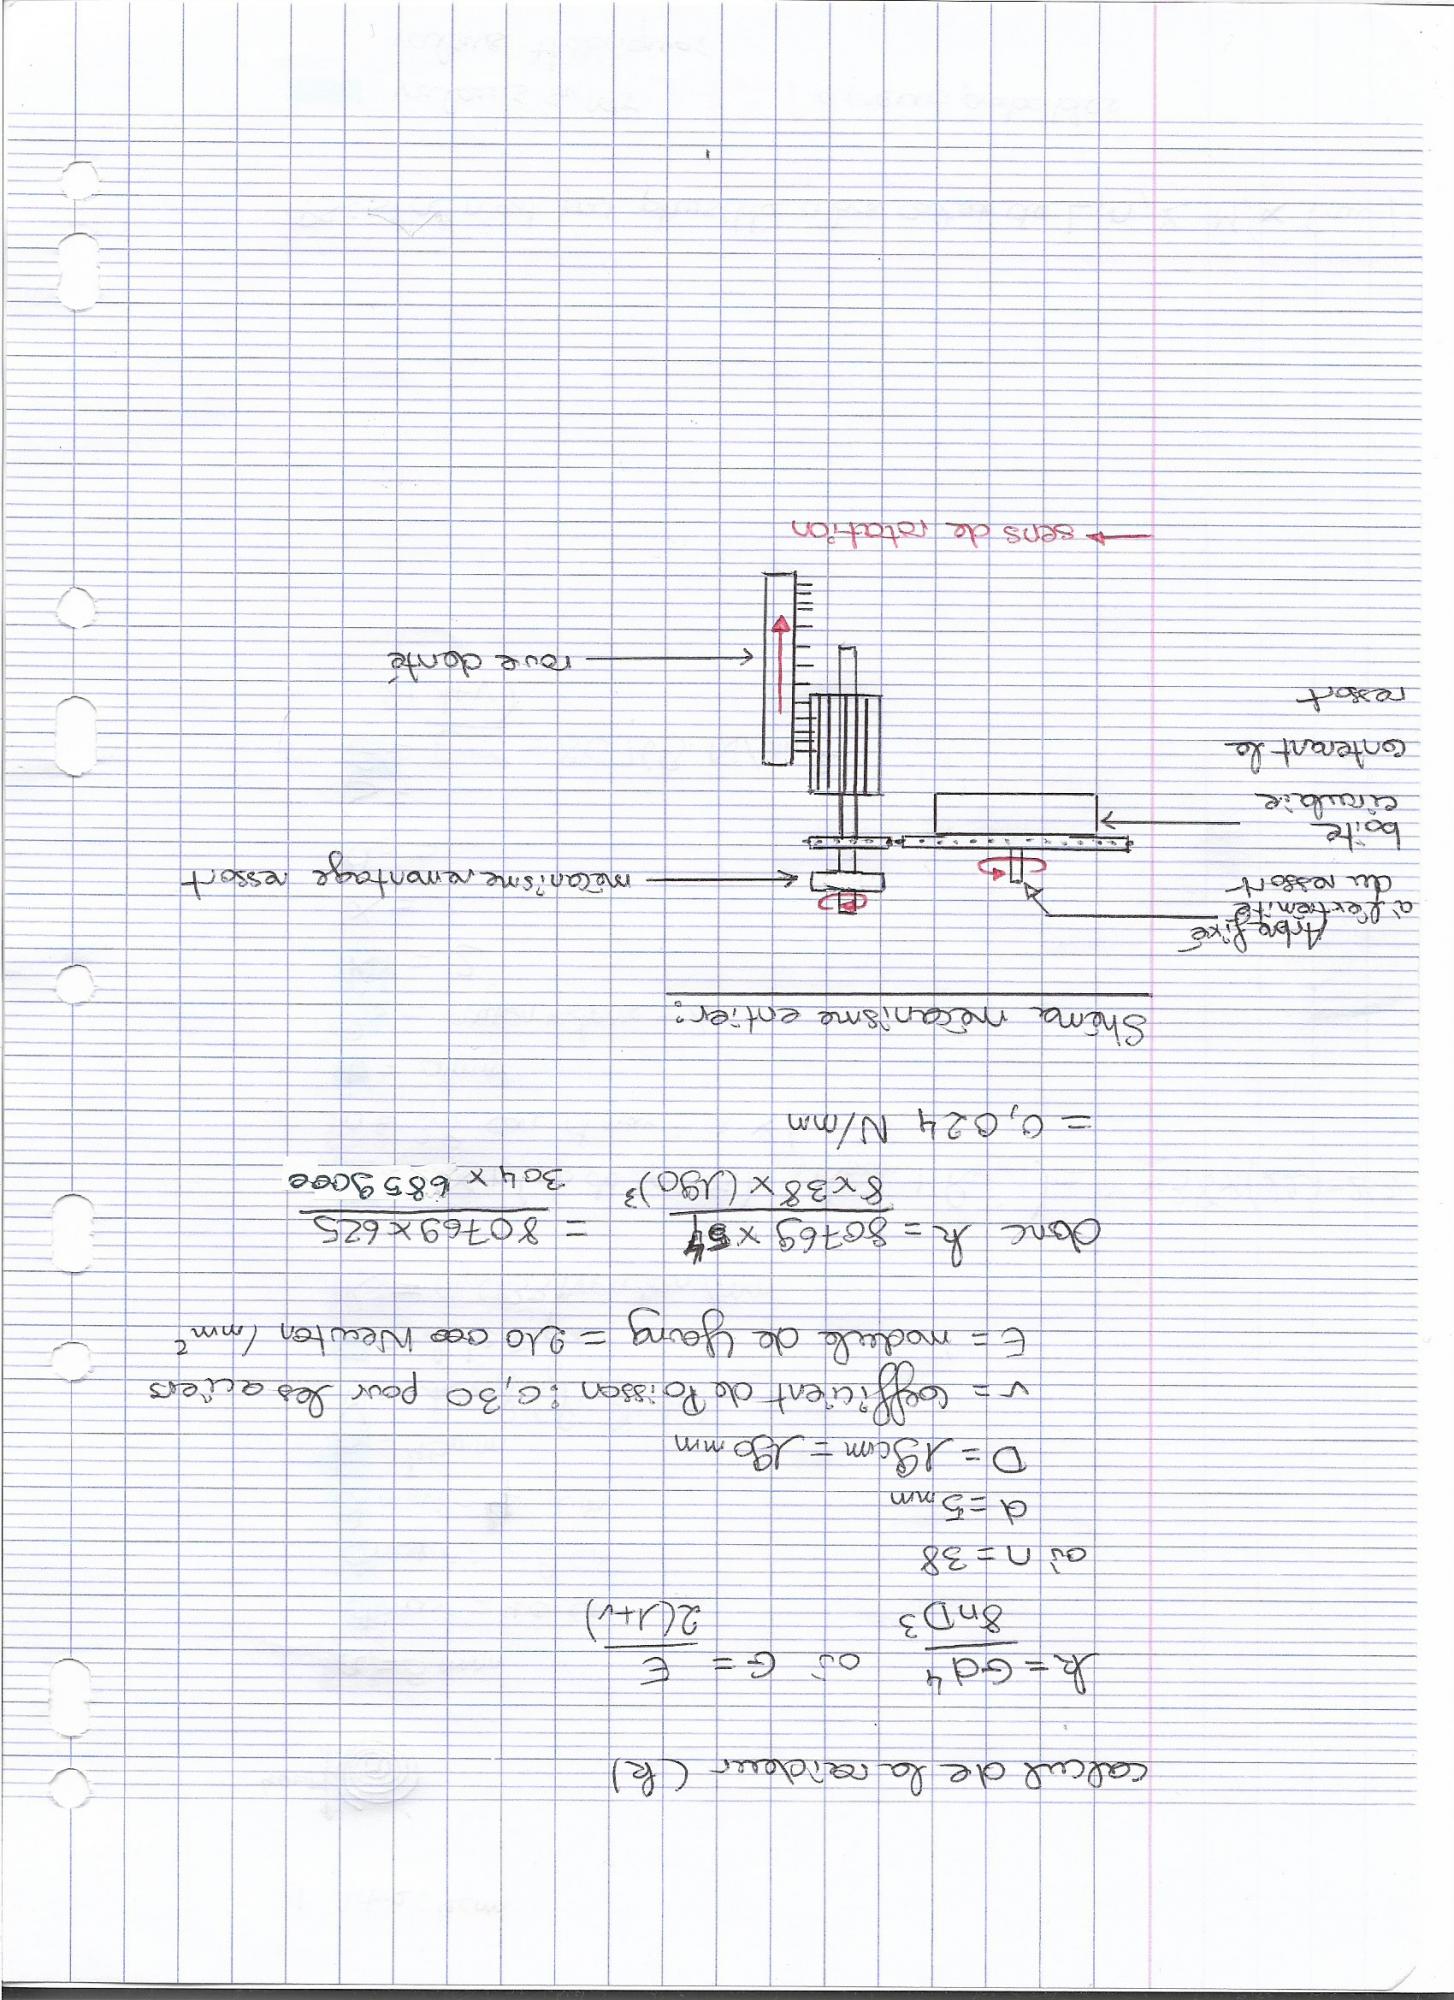 calcul de la raideur (k)
k = Gd4 / 8nD3 où G = E / 2(1+v)
où n = 38
d = 5 mm
D = 19 cm = 190 mm
v = coefficient de Poisson : 0,30 pour les aciers
E = module de Young = 210 000 Newton / mm²
donc k = 80769 x 54 / 8 x 38 x (190)³ = 80769 x 625 / 304 x 6859000
= 0,024 N/mm
Shéma mécanisme entier :
Arbre fixé
à l'extrémité
du ressort
mécanisme remontage ressort
boite
circulaire
contenant le
ressort
roue denté
sens de rotation